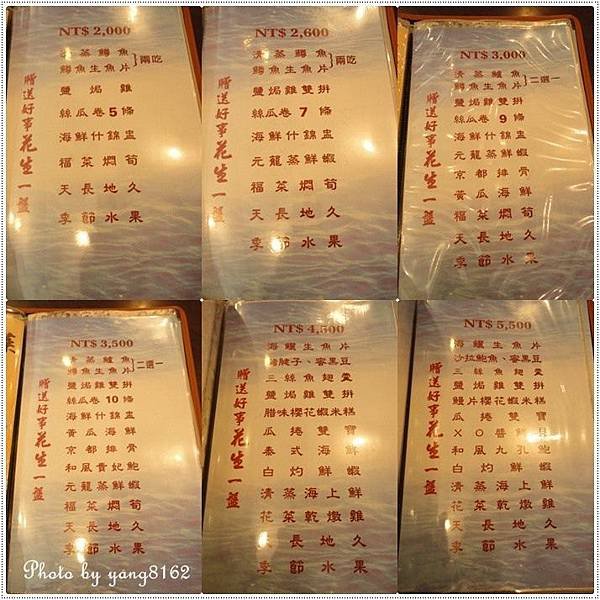 NT$ 2,000
清蒸鱒魚
鱒魚生魚片
兩吃
鹽焗雞
絲瓜卷5條
海鮮什錦盅
福菜燜筍
天長地久
季節水果
贈送好事花生一盤
NT$ 2,600
清蒸鱒魚
鱒魚生魚片
兩吃
鹽焗雞雙拼
絲瓜卷7條
海鮮什錦盅
元龍蒸鮮蝦
福菜燜筍
天長地久
季節水果
贈送好事花生一盤
NT$ 3,000
清蒸鱸魚
鱒魚生魚片
二選一
鹽焗雞雙拼
絲瓜卷9條
海鮮什錦盅
元龍蒸鮮蝦
京都排骨
黃瓜海鮮
福菜燜筍
天長地久
季節水果
贈送好事花生一盤
NT$ 3,500
清蒸鱸魚
鱒魚生魚片
二選一
鹽焗雞雙拼
絲瓜卷10條
海鮮什錦盅
黃瓜海鮮
京都排骨
和風貴妃鮑
元龍蒸鮮蝦
福菜燜筍
天長地久
季節水果
贈送好事花生一盤
NT$ 4,500
海鱺生魚片
腱子、蜜黑豆
三絲魚翅羹
鹽焗雞雙拼
臘味櫻花蝦米糕
瓜捲雙寶
泰式海鮮
白灼鮮蝦
清蒸海上鮮
花菜乾燉雞
天長地久
季節水果
贈送好事花生一盤
NT$ 5,500
海鱺生魚片
沙拉鮑魚、蜜黑豆
三絲魚翅羹
鹽焗雞雙拼
鰻片櫻花蝦米糕
瓜捲雙寶
XO醬鮮貝
和風九孔鮑
白灼鮮蝦
清蒸海上鮮
花菜乾燉雞
天長地久
季節水果
贈送好事花生一盤
Photo by yang8162